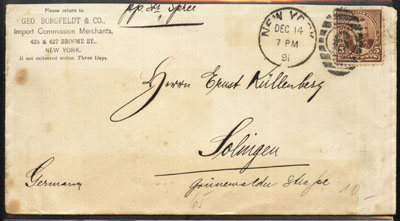 Please return to
GEO. BORGFELDT & CO.,
Import Commission Merchants,
425 & 427 BROOME ST.,
NEW YORK.
If not delivered within Three Days.
pp. Ss Spree
NEW YORK
DEC 14
7 PM
91
Herrn Ernst Küllenberg
Solingen
Grünewalder Straße
Germany
10.-